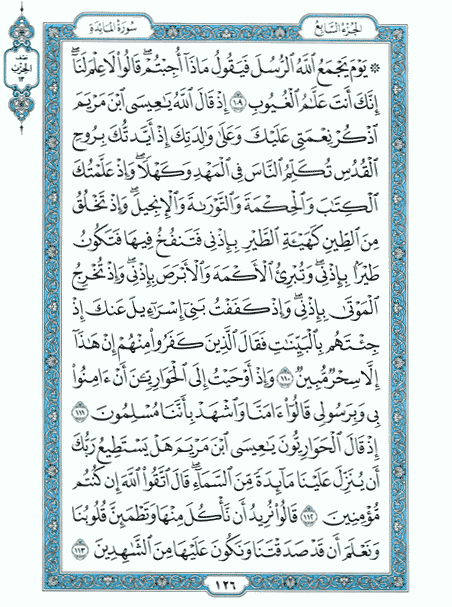 الجزء السابع
سورة المائدة
نصف
الحزب
١٣
۞ يَوْمَ يَجْمَعُ ٱللَّهُ ٱلرُّسُلَ فَيَقُولُ مَاذَآ أُجِبْتُمْ ۖ قَالُوا۟ لَا عِلْمَ لَنَآ ۖ
إِنَّكَ أَنتَ عَلَّٰمُ ٱلْغُيُوبِ ١٠٩ إِذْ قَالَ ٱللَّهُ يَٰعِيسَى ٱبْنَ مَرْيَمَ
ٱذْكُرْ نِعْمَتِى عَلَيْكَ وَعَلَىٰ وَٰلِدَتِكَ إِذْ أَيَّدتُّكَ بِرُوحِ
ٱلْقُدُسِ تُكَلِّمُ ٱلنَّاسَ فِى ٱلْمَهْدِ وَكَهْلًا ۖ وَإِذْ عَلَّمْتُكَ
ٱلْكِتَٰبَ وَٱلْحِكْمَةَ وَٱلتَّوْرَىٰةَ وَٱلْإِنجِيلَ ۖ وَإِذْ تَخْلُقُ
مِنَ ٱلطِّينِ كَهَيْـَٔةِ ٱلطَّيْرِ بِإِذْنِى فَتَنفُخُ فِيهَا فَتَكُونُ
طَيْرًۢا بِإِذْنِى ۖ وَتُبْرِئُ ٱلْأَكْمَهَ وَٱلْأَبْرَصَ بِإِذْنِى ۖ وَإِذْ تُخْرِجُ
ٱلْمَوْتَىٰ بِإِذْنِى ۖ وَإِذْ كَفَفْتُ بَنِىٓ إِسْرَٰٓءِيلَ عَنكَ إِذْ
جِئْتَهُم بِٱلْبَيِّنَٰتِ فَقَالَ ٱلَّذِينَ كَفَرُوا۟ مِنْهُمْ إِنْ هَٰذَآ
إِلَّا سِحْرٌ مُّبِينٌ ١١٠ وَإِذْ أَوْحَيْتُ إِلَى ٱلْحَوَارِيِّـۧنَ أَنْ ءَامِنُوا۟
بِى وَبِرَسُولِى قَالُوٓا۟ ءَامَنَّا وَٱشْهَدْ بِأَنَّنَا مُسْلِمُونَ ١١١
إِذْ قَالَ ٱلْحَوَارِيُّونَ يَٰعِيسَى ٱبْنَ مَرْيَمَ هَلْ يَسْتَطِيعُ رَبُّكَ
أَن يُنَزِّلَ عَلَيْنَا مَآئِدَةً مِّنَ ٱلسَّمَآءِ ۖ قَالَ ٱتَّقُوا۟ ٱللَّهَ إِن كُنتُم
مُّؤْمِنِينَ ١١٢ قَالُوا۟ نُرِيدُ أَن نَّأْكُلَ مِنْهَا وَتَطْمَئِنَّ قُلُوبُنَا
وَنَعْلَمَ أَن قَدْ صَدَقْتَنَا وَنَكُونَ عَلَيْهَا مِنَ ٱلشَّٰهِدِينَ ١١٣
١٢٦